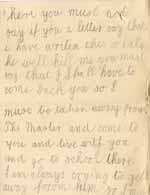 there you must not
say if you a letter say that
i have writen this or else
he will kill me you must
say that I shall have to
come back you so I
must be taken away from
The Master and come to
you and live with you
and go to school there
I am always crying to get
away from him